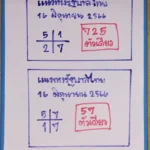 แนวทางรัฐบาลไทย
16 มิถุนายน 2566
5 1
2 7
725
ตัวเดียว
แนวทางรัฐบาลไทย
16 มิถุนายน 2566
5 7
1 7
57
ตัวเดียว